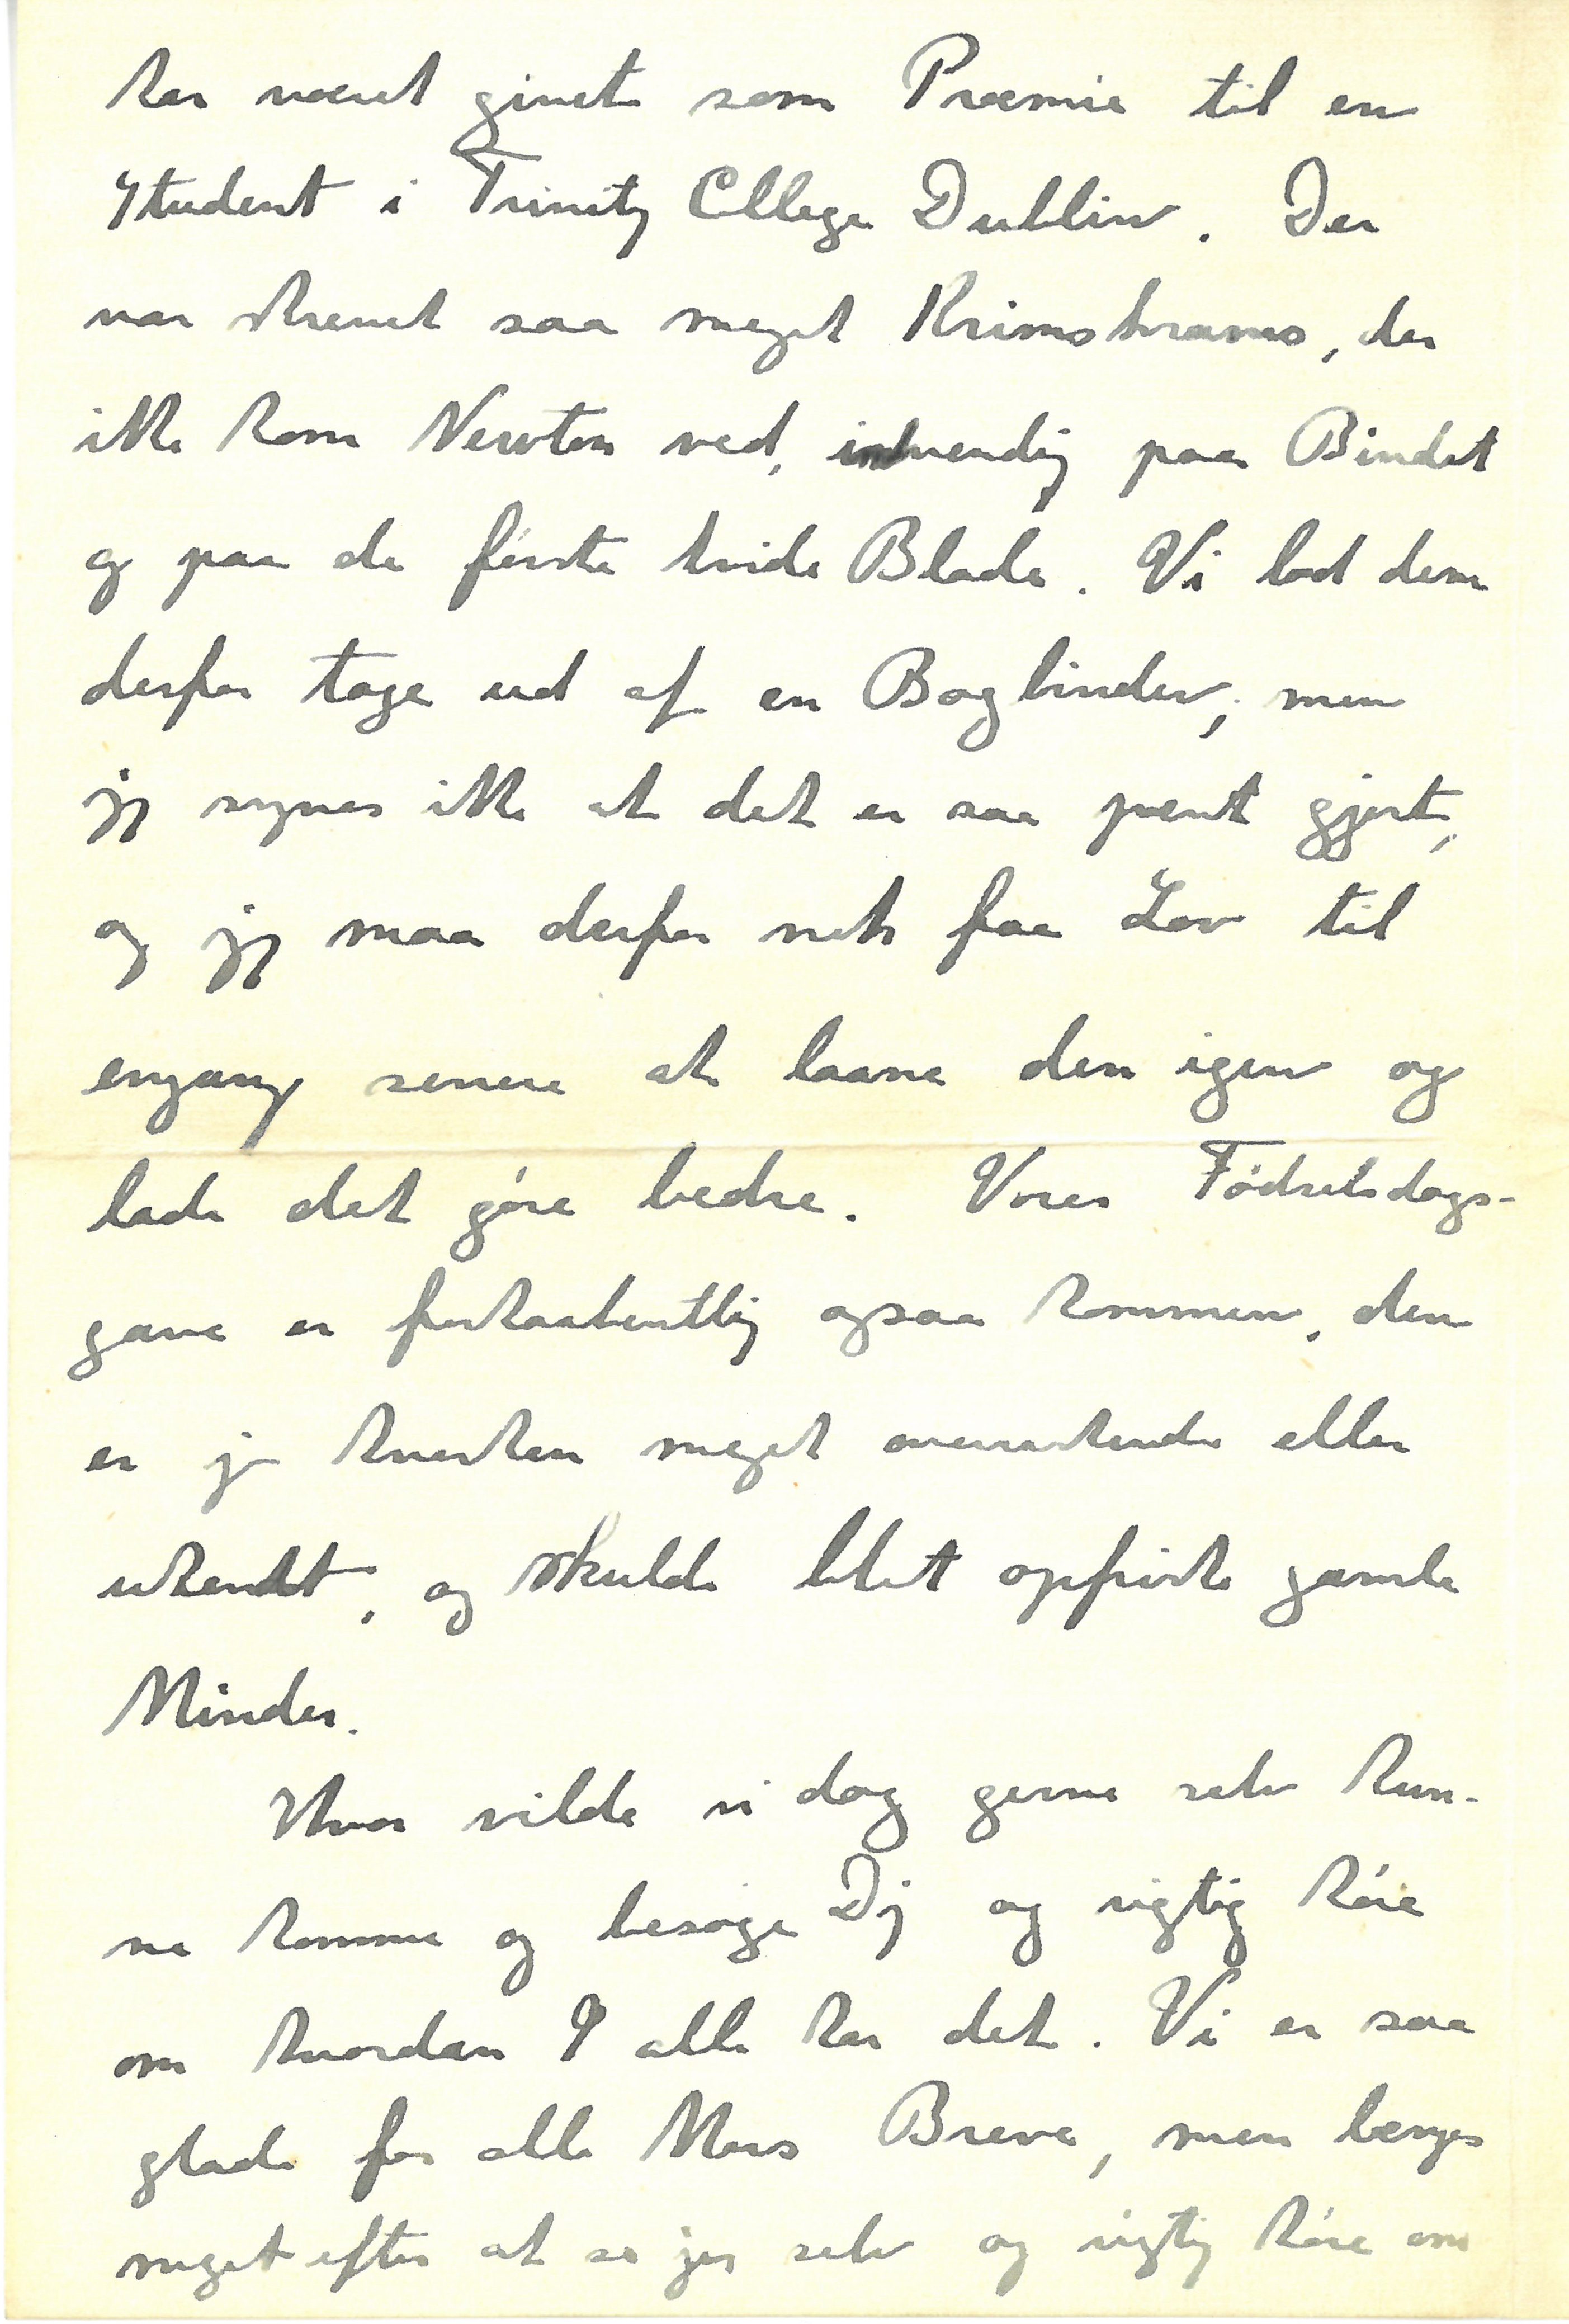 har været givet som Præmie til en
Student i Trinity Cllege Dublin. Der
var skrevet saa meget Krimskrams, der
ikke kom Newton ved, indvendig paa Bindet
og paa de første hvide Blade. Vi lod dem
derfor tage ud af en Bogbinder, men
jeg synes ikke at det er saa pænt gjort,
og jeg maa derfor nok faa Lov til
engang senere at laane den igen og
lade det gøre bedre. Vores Fødselsdags-
gave er forhaabentlig ogsaa kommen, den
er jo hverken meget overraskende eller
ukendt, og skulde blot opfriske gamle
Minder.
Hvor vilde vi dog gerne selv kun-
ne komme og besøge Dig og rigtig høre
om hvordan I alle har det. Vi er saa
glade for alle Mors Breve, men længes
meget efter at se jer selv og rigtig høre om